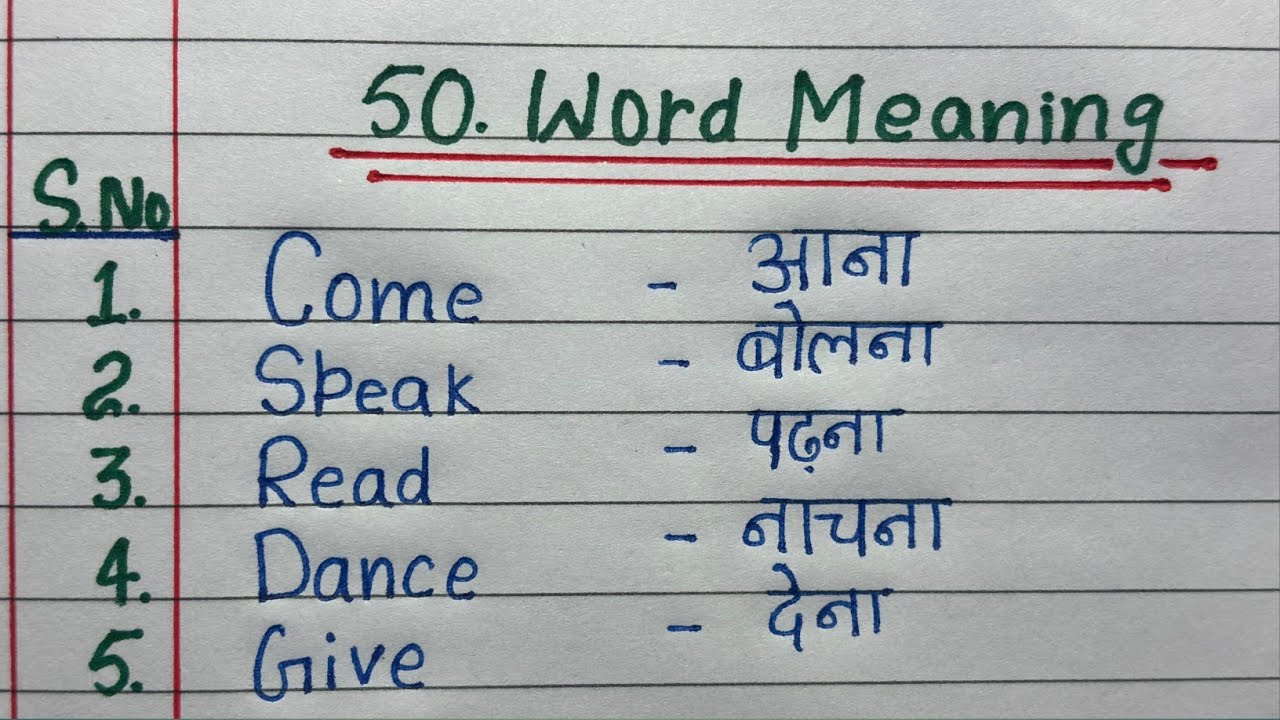 50. Word Meaning
S.No
1. Come - आना
2. Speak - बोलना
3. Read - पढ़ना
4. Dance - नाचना
5. Give - देना